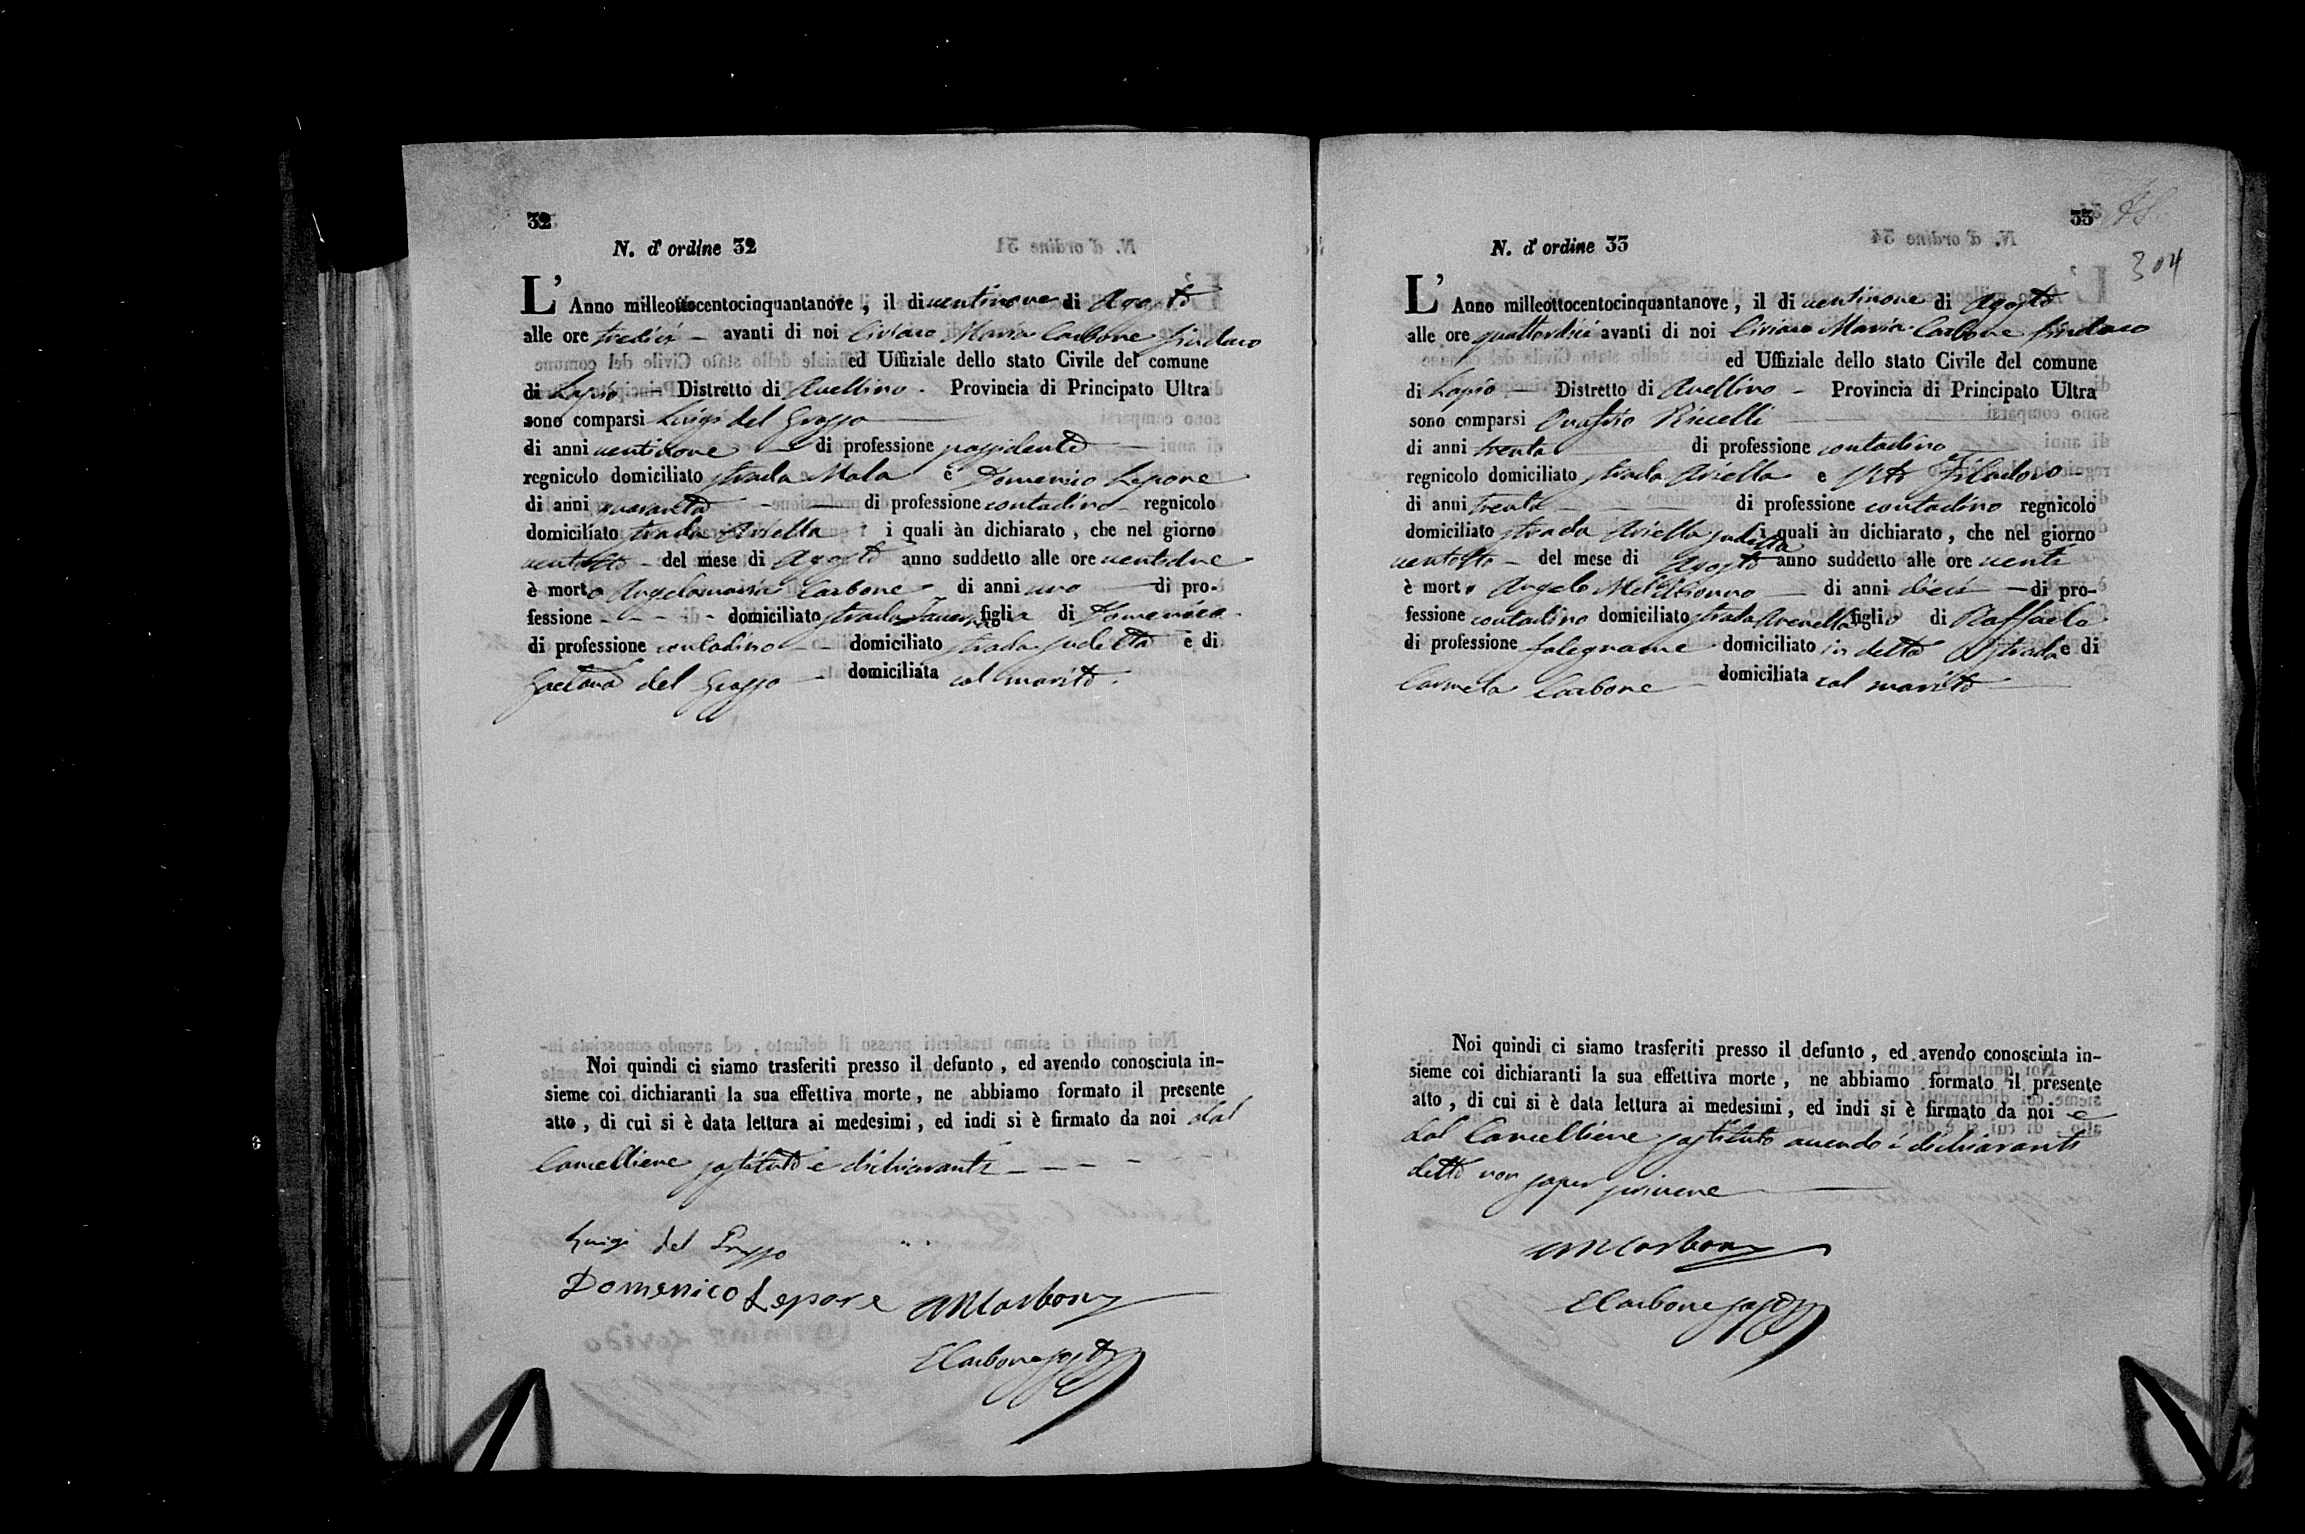 32
N. d' ordine 32
L' Anno milleottocentocinquantanove, il di ventinove di Agosto
alle ore tredici - avanti di noi Ciriaco Maria Carbone Sindaco
ed Uffiziale dello stato Civile del comune
di Lapio - Distretto di Avellino - Provincia di Principato Ultra
sono comparsi Luigi del Grosso
di anni ventinove di professione possidente
regnicolo domiciliato strada Mala e Domenico Lepore
di anni quaranta di professione contadino regnicolo
domiciliato strada Ariella i quali àn dichiarato, che nel giorno
ventotto - del mese di Agosto anno suddetto alle ore ventidue
è morta Angelamaria Carbone di anni uno di pro-
fessione - - - - domiciliato strada figlia di Domenico
di professione contadino - domiciliato strada sudetta e di
Gaetana del Grosso domiciliata col marito
Noi quindi ci siamo trasferiti presso il defunto, ed avendo conosciuta in-
sieme coi dichiaranti la sua effettiva morte, ne abbiamo formato il presente
atto, di cui si è data lettura ai medesimi, ed indi si è firmato da noi dal
Cancelliere sostituto e dichiaranti - - - - -
Luigi del Grosso
Domenico Lepore CMCarbone
ECarbone sosto
33
304
N. d' ordine 33
L' Anno milleottocentocinquantanove, il di ventinove di Agosto
alle ore quattordici avanti di noi Ciriaco Maria Carbone Sindaco
ed Uffiziale dello stato Civile del comune
di Lapio - Distretto di Avellino - Provincia di Principato Ultra
sono comparsi Onofrio
di anni trenta di professione contadino
regnicolo domiciliato strada Ariella e Vito
di anni trenta di professione contadino regnicolo
domiciliato strada Ariella sudetta i quali àn dichiarato, che nel giorno
ventotto - del mese di Agosto anno suddetto alle ore venti
è morto Angelo di anni dieci - di pro-
fessione contadino domiciliato strada figlio di Raffaele
di professione falegname domiciliato in detta strada e di
Carmela Carbone domiciliata col marito
Noi quindi ci siamo trasferiti presso il defunto, ed avendo conosciuta in-
sieme coi dichiaranti la sua effettiva morte, ne abbiamo formato il presente
atto, di cui si è data lettura ai medesimi, ed indi si è firmato da noi e
dal Cancelliere sostituto avendo i dichiaranti
detto non saper scrivere
CMCarbone
ECarbone sosto